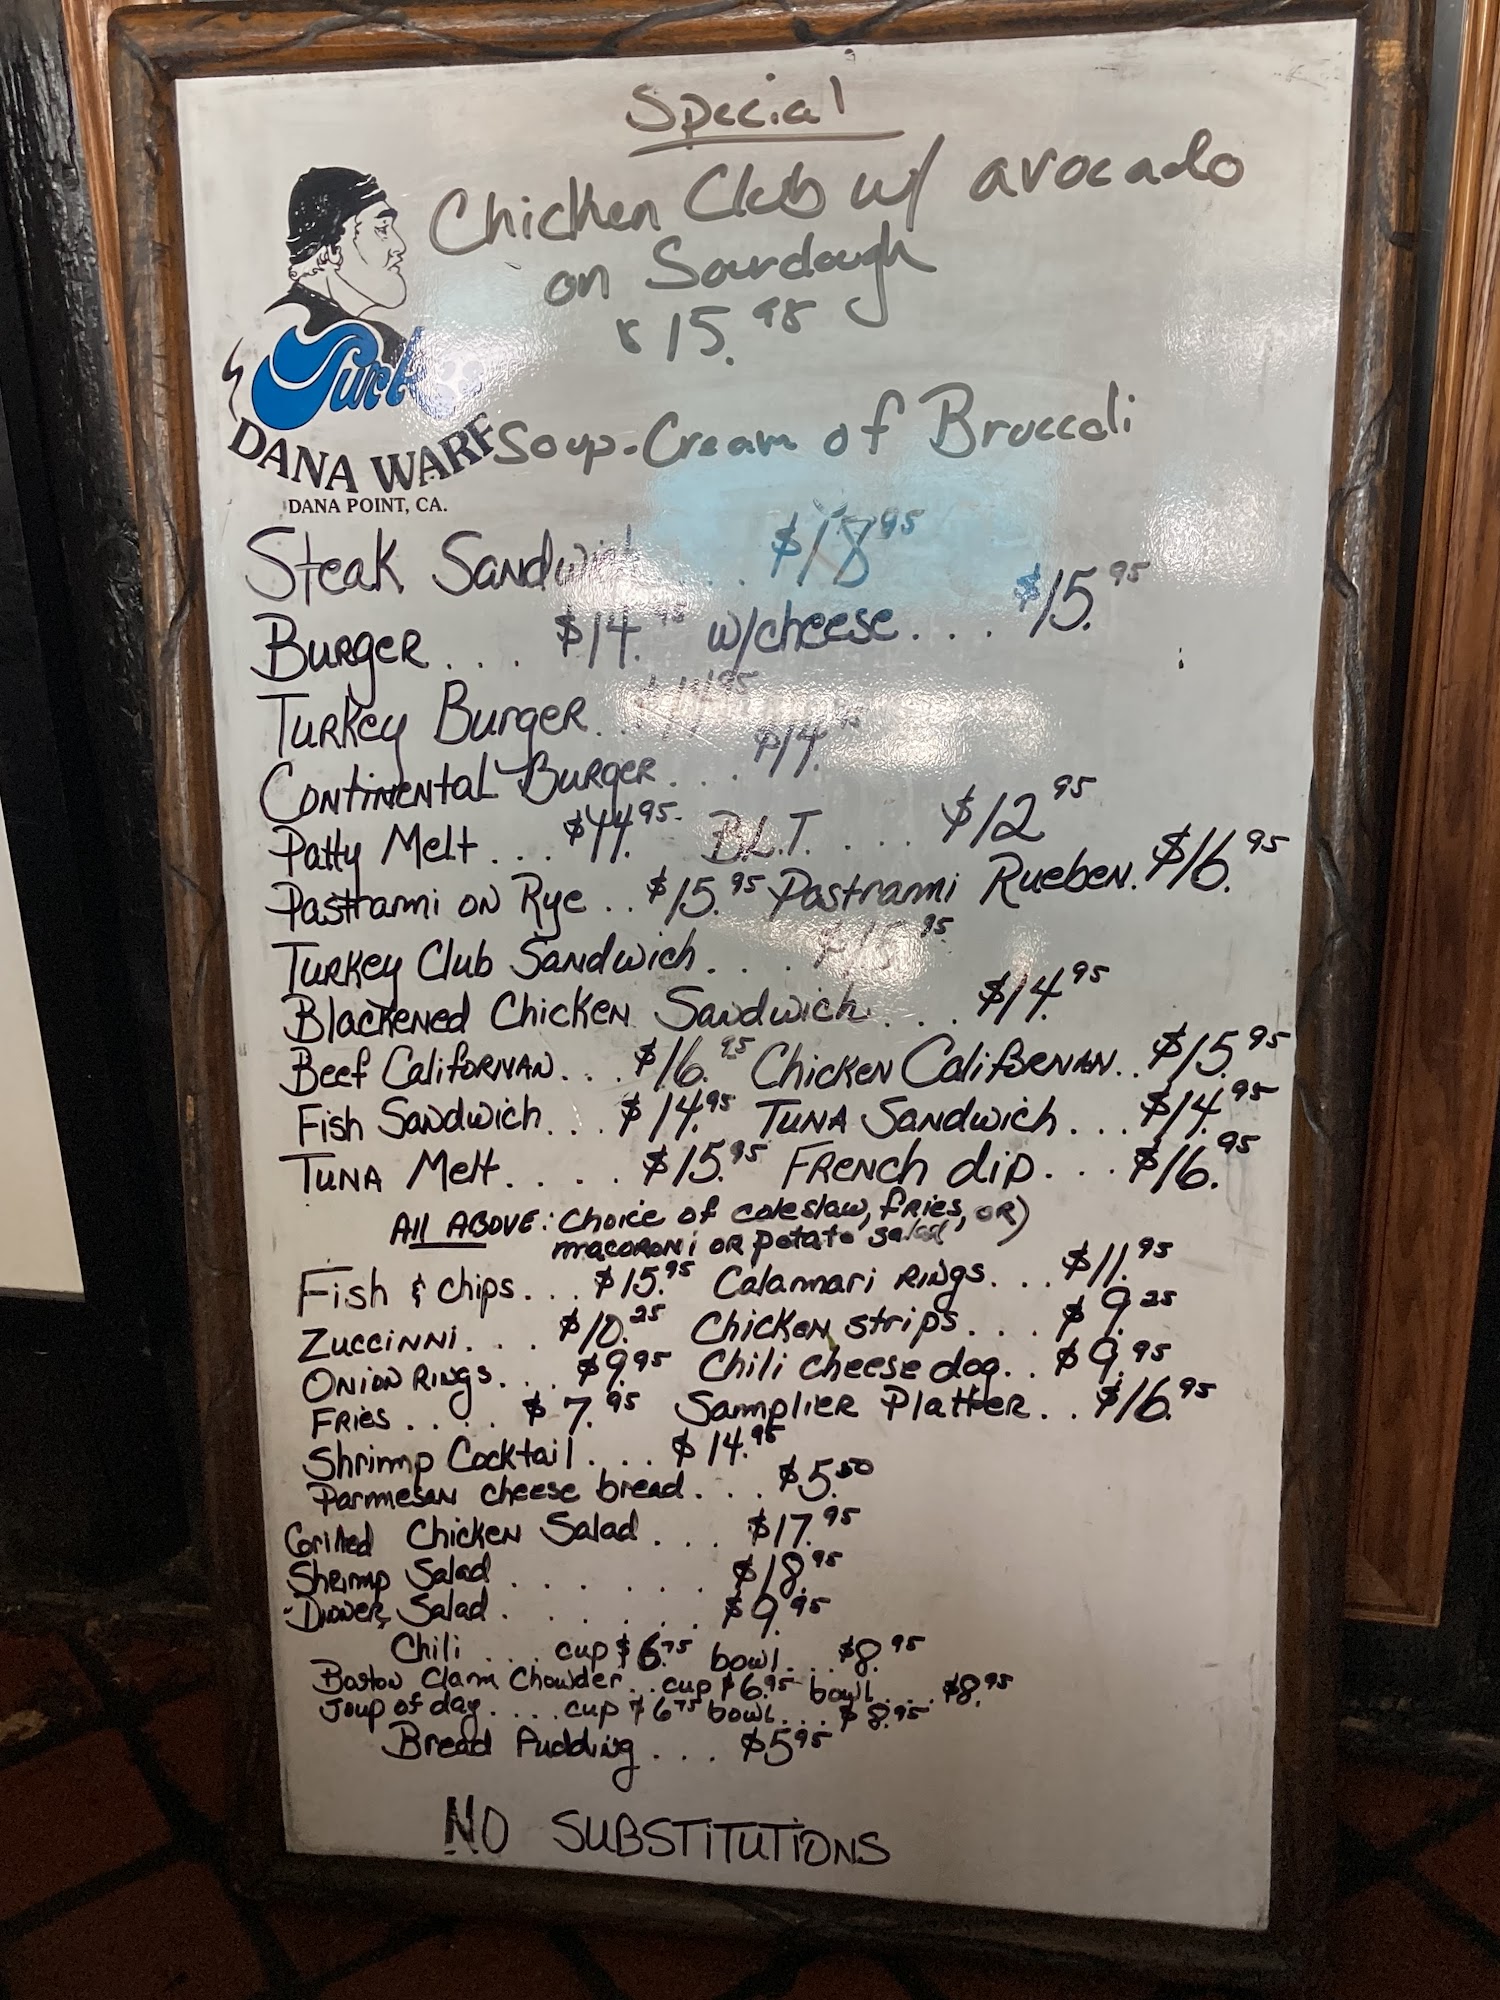 Special
Chicken Club w/ avocado
on Sourdough
$15.95
DANA WARF
DANA POINT, CA.
Soup-Cream of Broccoli
Steak Sandwich . . . $18 95
Burger . . . . $14. 95 w/cheese . . . . $15. 95
Turkey Burger . . . $14 95
Continental Burger . . . $14. 95
Patty Melt . . . $14. 95 B.L.T. . . . . $12 95
Pastrami on Rye . . $15. 95 Pastrami Rueben. $16. 95
Turkey Club Sandwich . . . $15 95
Blackened Chicken Sandwich . . . $14. 95
Beef Californan . . . $16. 95 Chicken Californan . . $15. 95
Fish Sandwich . . . $14. 95 Tuna Sandwich . . . $14. 95
Tuna Melt . . . . $15. 95 French dip . . . $16. 95
All Above: choice of coleslaw, fries, or)
macoroni or potato salad
Fish & chips . . . $15. 95 Calamari rings . . . $11. 95
Zuccinni . . . $10. 25 Chicken strips . . . $9. 25
Onion Rings . . . $9. 95 Chili cheese dog . . $9. 95
Fries . . . . $7. 95 Samplier Platter . . $16. 95
Shrimp Cocktail . . . $14. 95
Parmesan cheese bread . . . $5. 50
Grilled Chicken Salad . . . $17. 95
Shrimp Salad . . . . . . $18. 95
Dinner Salad . . . . . . $9. 95
Chili . . . cup $6. 75 bowl . . . $8. 95
Boston Clam Chowder . . cup $6. 95 bowl . . . . $8. 95
Soup of day . . . . cup $6 75 bowl . . . $8. 95
Bread Pudding . . . $5 95
NO SUBSTITUTIONS